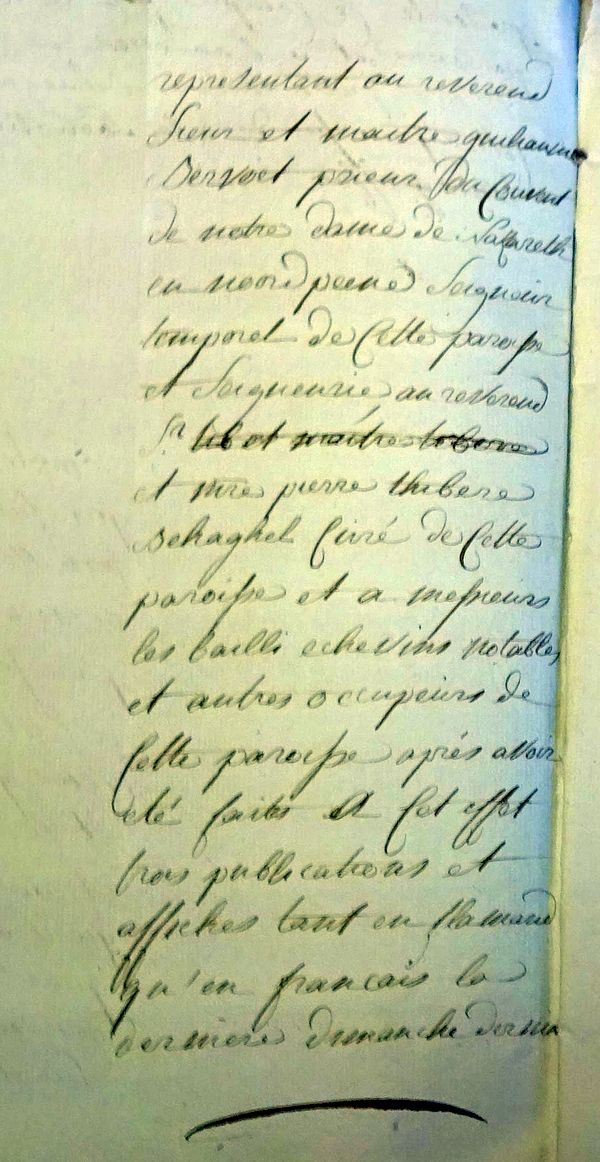 representant au reverend
Sieur et maitre guilhaume
Dervoet prieur du Couvent
de notre dame de Nazareth
en noordpeene Seigneur
temporel de Cette paroisse
et Seigneurie au reverend
Sr
et mre pierre thibere
Dehaghel Curé de Cette
paroisse et a messieurs
les bailli echevins notables
et autres occupeurs de
Cette paroisse aprés avoir
eté faites A Cet effet
trois publications et
affiches tant en flamand
qu'en francais la
derniere dimanche dernier